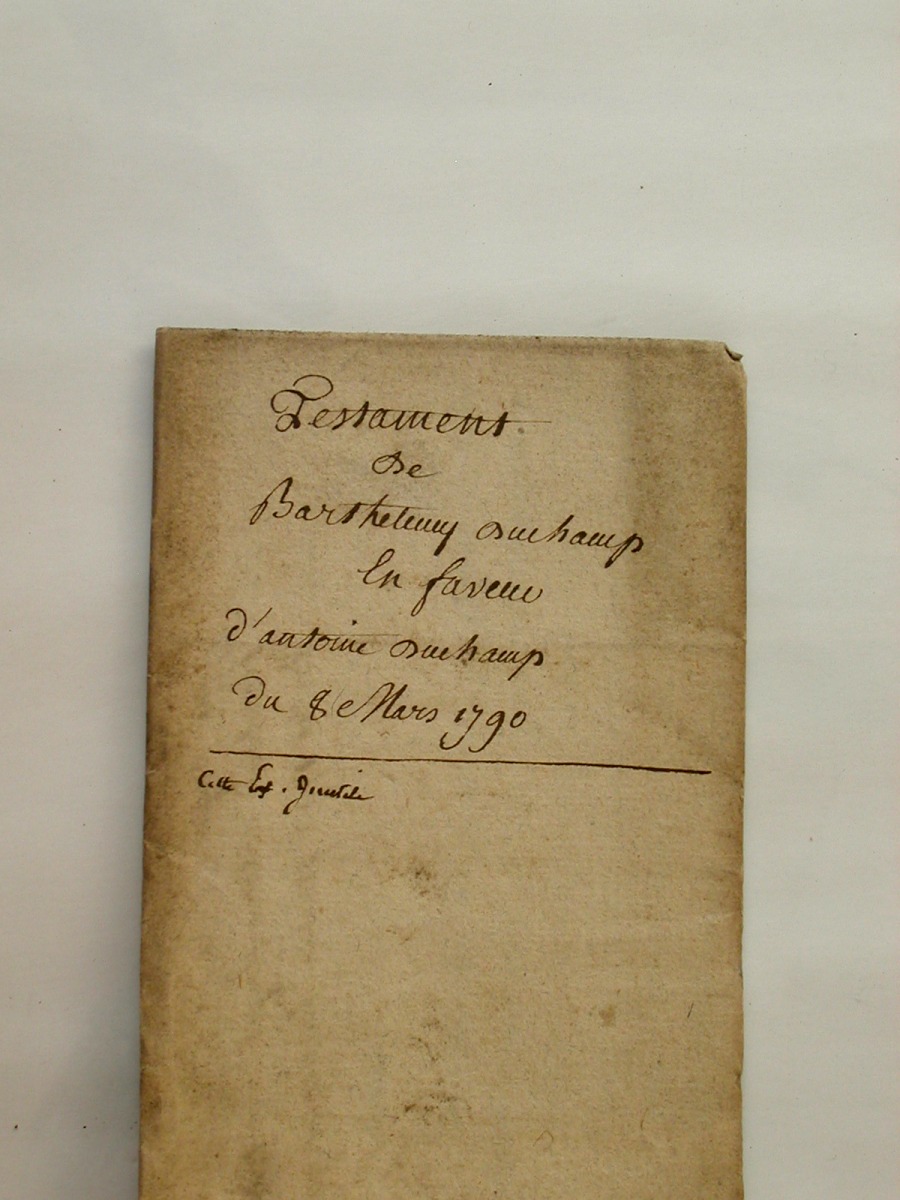 Testament
de
Barthelemy duchamp
En faveur
d'antoine duchamp
du 8 Mars 1790
Cotte